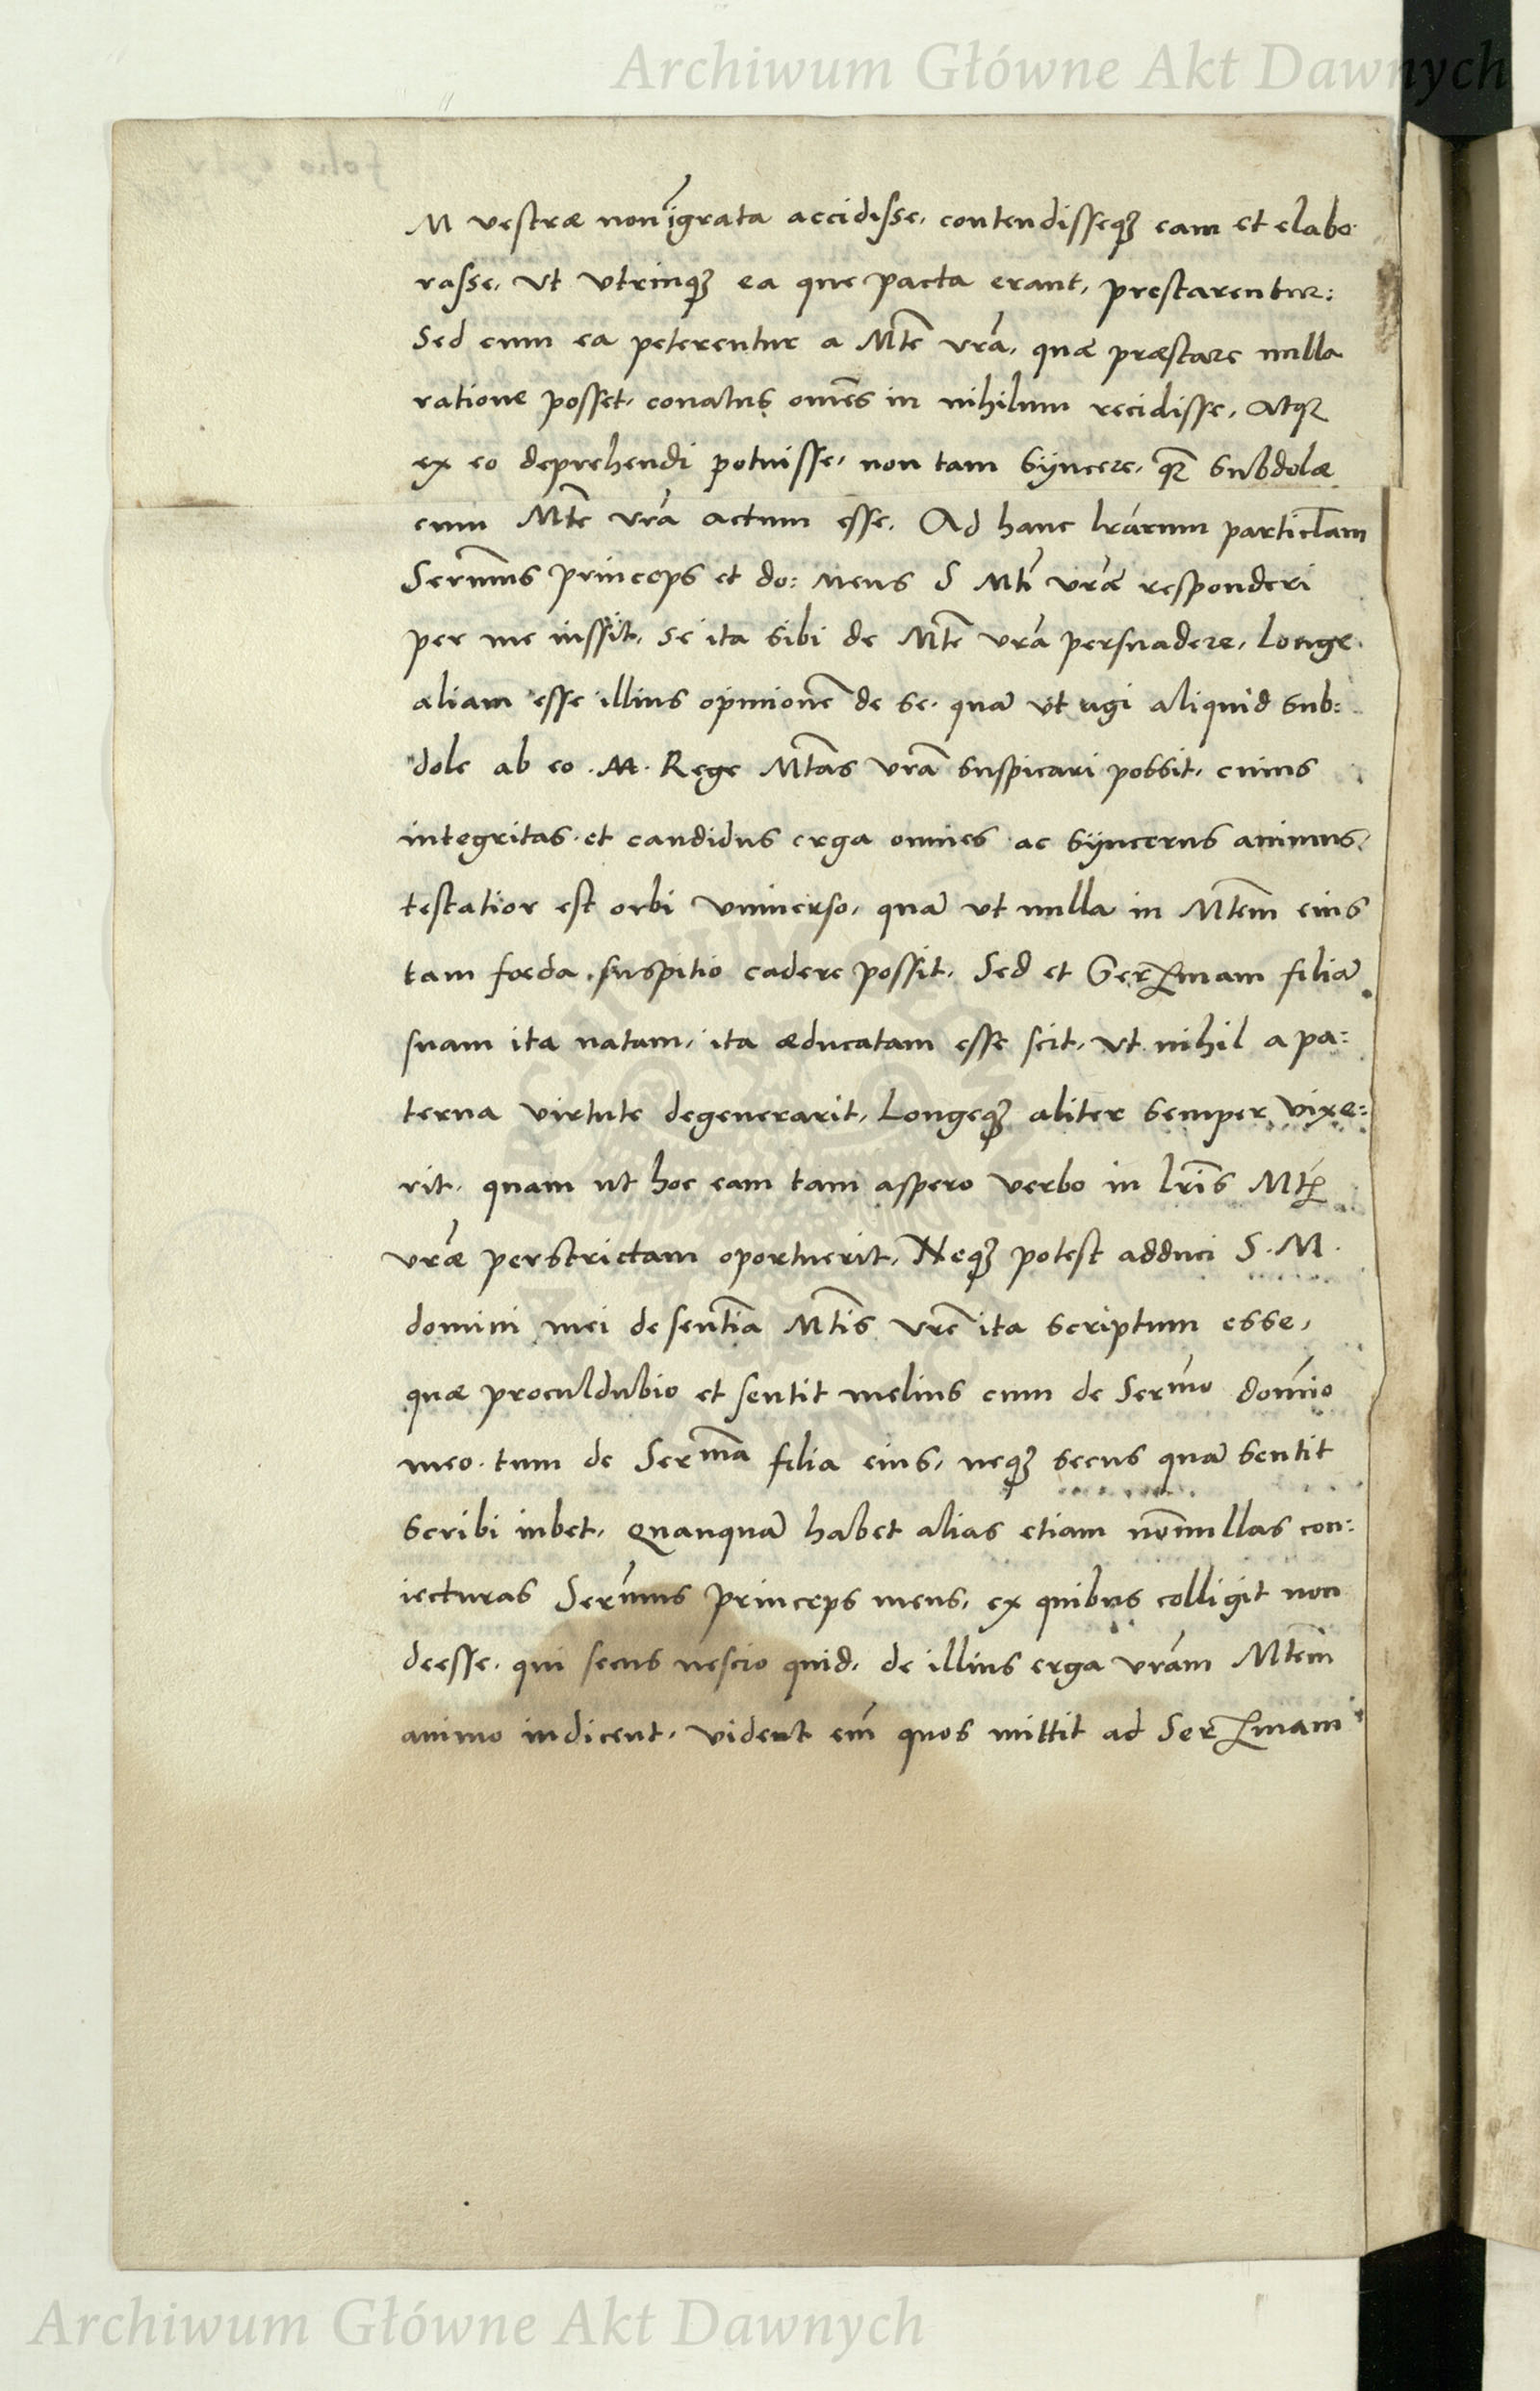 Archiwum Główne Akt Dawnych
M vestræ non īgrata accidisse, contendisseqȝ eam et elabo-
rasse, Vt Vtrinqȝ ea que pacta erant, prestarentur:
Sed cum ea peterentur a Mte vrã, quæ præstare nulla
ratione posset, conatus om̃es in nihilum recidisse, Atqȝ
ex eo deprehendi potuisse, non tam syncere, qȝ subdolæ
cum Mte vrã actum esse. Ad hanc lrãrum particlam
Sermus princeps et do: meus S Mti vræ responderi
per me iussit, se ita sibi de Mte vrã persuadere, Longe
aliam esse illius opinionẽ de se, quã ut agi aliquid sub:
dole ab eo .M. Rege Mtas vrã suspicari possit, cuius
integritas et candidus erga omnes ac syncerus animus,
testatior est orbi vniuerso, quã vt nulla in Mtem eius
tam fœda suspitio cadere possit, Sed et Serᵐmam filiã
suam ita natam, ita æducatam esse scit, vt nihil a pa:
terna virtute degenerarit, Longeqȝ aliter semper vixe:
rit, quam ut hoc eam tam aspero verbo in lrĩs Mtis
vræ perstrictam oportuerit, Neqȝ potest adduci S. M.
domini mei de sentĩa Mtis vrẽ ita scriptum esse,
quæ proculdubio et sentit melius cum de Sermo domĩo
meo, tum de Serma filia eius, neqȝ secus quã sentit
scribi iubet, Quanquã habet alias etiam nõnullas con:
iecturas Sermus princeps meus, ex quibus colligit non
deesse, qui secus nescio quid, de illius erga vrãm Mtem
animo indicent, vident em̃ quos mittit ad Serᵐmam
Archiwum Główne Akt Dawnych